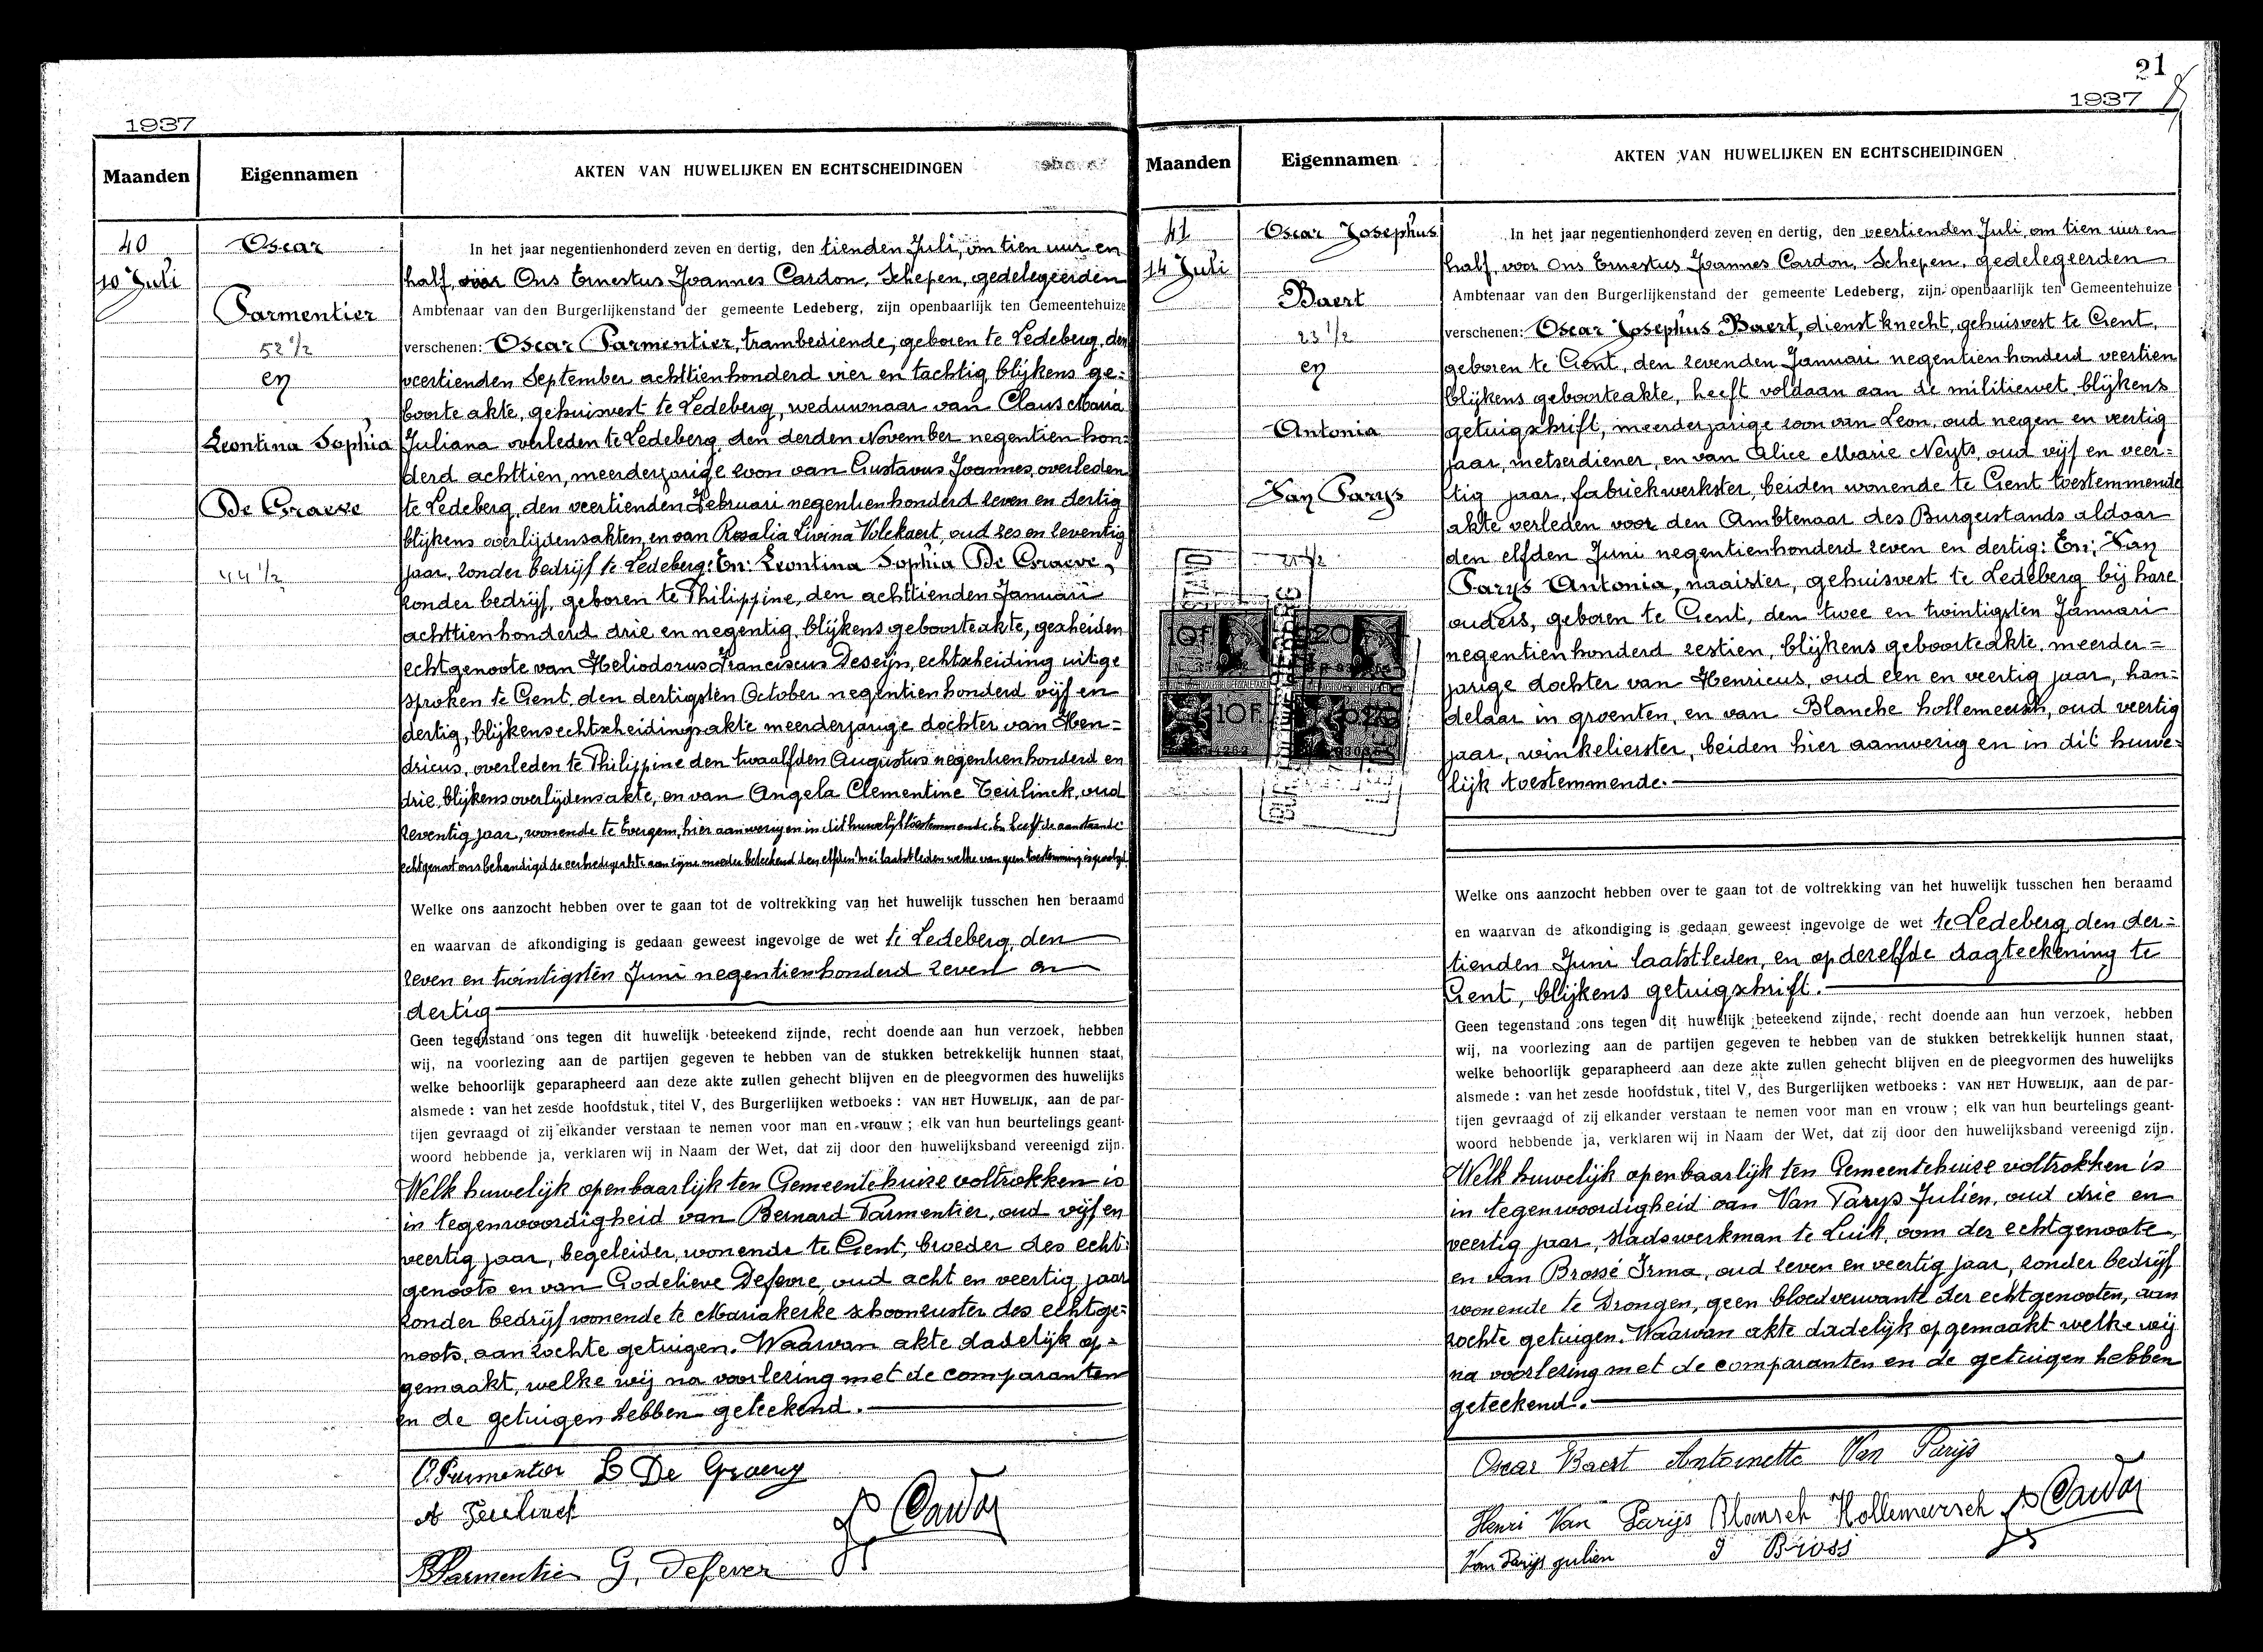 1937
Maanden
Eigennamen
AKTEN VAN HUWELIJKEN EN ECHTSCHEIDINGEN
40
10 Juli
Oscar
Parmentier
52 1/2
en
Leontina Sophia
De Graeve
44 1/2
In het jaar negentienhonderd zeven en dertig, den tienden Juli, om tien uur en
half, voor Ons Ernestus Joannes Cardon, Schepen, gedelegeerden
Ambtenaar van den Burgerlijkenstand der gemeente Ledeberg, zijn openbaarlijk ten Gemeentehuize
verschenen: Oscar Parmentier, trambediende, geboren te Ledeberg, den
veertienden September achttienhonderd vier en tachtig, blijkens ge=
boorte akte, gehuisvest te Ledeberg, weduwnaar van Claus Maria
Juliana overleden te Ledeberg, den derden November negentien hon=
derd achttien, meerderjarige zoon van Gustavus Joannes, overleden
te Ledeberg, den veertienden Februari negentienhonderd zeven en dertig
blijkens overlijdensakten, en van Rosalia Livina Volckaert, oud zes en zeventig
jaar, zonder bedrijf te Ledeberg: En: Leontina Sophia De Graeve,
zonder bedrijf, geboren te Philippine, den achttienden Januari
achttienhonderd drie en negentig, blijkens geboorteakte, gescheiden
echtgenoote van Heliodorus Franciscus Deseijn, echtscheiding uitge
sproken te Gent, den dertigsten October negentienhonderd vijf en
dertig, blijkens echtscheidingsakte meerderjarige dochter van Hen=
dricus, overleden te Philippine den twaalfden Augustus negentienhonderd en
drie, blijkens overlijdensakte, en van Angela Clementine Teirlinck, oud
zeventig jaar, wonende te Evergem, hier aanwezig en in dit huwelijk toestemmende. En heeft de aanstaande
echtgenoot ons behandigd de eerbiedigsakte aan zijne moeder beteekend den elfden Mei laatstleden welke van geen toestemming is gevolgd.
Welke ons aanzocht hebben over te gaan tot de voltrekking van het huwelijk tusschen hen beraamd
en waarvan de afkondiging is gedaan geweest ingevolge de wet te Ledeberg, den
zeven en twintigsten Juni negentienhonderd zeven en
dertig
Geen tegenstand ons tegen dit huwelijk beteekend zijnde, recht doende aan hun verzoek, hebben
wij, na voorlezing aan de partijen gegeven te hebben van de stukken betrekkelijk hunnen staat,
welke behoorlijk geparapheerd aan deze akte zullen gehecht blijven en de pleegvormen des huwelijks
alsmede : van het zesde hoofdstuk, titel V, des Burgerlijken wetboeks : VAN HET HUWELIJK, aan de par-
tijen gevraagd of zij elkander verstaan te nemen voor man en vrouw ; elk van hun beurtelings geant-
woord hebbende ja, verklaren wij in Naam der Wet, dat zij door den huwelijksband vereenigd zijn.
Welk huwelijk openbaarlijk ten Gemeentehuize voltrokken is
in tegenwoordigheid van Bernard Parmentier, oud vijf en
veertig jaar, begeleider, wonende te Gent, broeder des echt=
genoots en van Godelieve Defevre, oud acht en veertig jaar
zonder bedrijf wonende te Mariakerke schoonzuster des echtge=
noots, aanzochte getuigen. Waarvan akte dadelijk op=
gemaakt, welke wij na voorlezing met de comparanten
en de getuigen hebben geteekend.
O. Parmentier L De Graeve
A Teirlinck
Cardon
B Parmentier G. Defever
21
1937
Maanden
Eigennamen
AKTEN VAN HUWELIJKEN EN ECHTSCHEIDINGEN
41
14 Juli
Oscar Josephus
Baert
23 1/2
en
Antonia
Van Parys
21 1/2
10F
20
10F
In het jaar negentienhonderd zeven en dertig, den veertienden Juli, om tien uur en
half, voor Ons Ernestus Joannes Cardon, Schepen, gedelegeerden
Ambtenaar van den Burgerlijkenstand der gemeente Ledeberg, zijn openbaarlijk ten Gemeentehuize
verschenen: Oscar Josephus Baert, dienstknecht, gehuisvest te Gent,
geboren te Gent, den zevenden Januari negentienhonderd veertien
blijkens geboorteakte, heeft voldaan aan de militiewet blijkens
getuigschrift, meerderjarige zoon van Leon, oud negen en veertig
jaar, metserdiener, en van Alice Marie Neyts, oud vijf en veer=
tig jaar, fabriekwerkster, beiden wonende te Gent toestemmende
akte verleden voor den Ambtenaar des Burgerstands aldaar
den elfden Juni negentienhonderd zeven en dertig: En: Van
Parys Antonia, naaister, gehuisvest te Ledeberg bij hare
ouders, geboren te Gent, den twee en twintigsten Januari
negentienhonderd zestien, blijkens geboorteakte, meerder=
jarige dochter van Henricus, oud een en veertig jaar, han=
delaar in groenten, en van Blanche hollemeersch, oud veertig
jaar, winkelierster, beiden hier aanwezig en in dit huwe=
lijk toestemmende.
Welke ons aanzocht hebben over te gaan tot de voltrekking van het huwelijk tusschen hen beraamd
en waarvan de afkondiging is gedaan geweest ingevolge de wet te Ledeberg, den der=
tienden Juni laatstleden, en op dezelfde dagteekening te
Gent, blijkens getuigschrift.
Geen tegenstand ons tegen dit huwelijk beteekend zijnde, recht doende aan hun verzoek, hebben
wij, na voorlezing aan de partijen gegeven te hebben van de stukken betrekkelijk hunnen staat,
welke behoorlijk geparapheerd aan deze akte zullen gehecht blijven en de pleegvormen des huwelijks
alsmede : van het zesde hoofdstuk, titel V, des Burgerlijken wetboeks : VAN HET HUWELIJK, aan de par-
tijen gevraagd of zij elkander verstaan te nemen voor man en vrouw ; elk van hun beurtelings geant-
woord hebbende ja, verklaren wij in Naam der Wet, dat zij door den huwelijksband vereenigd zijn.
Welk huwelijk openbaarlijk ten Gemeentehuize voltrokken is
in tegenwoordigheid van Van Parys Julien, oud drie en
veertig jaar, stadswerkman te Luik, oom der echtgenoote,
en van Brossé Irma, oud zeven en veertig jaar, zonder bedrijf
wonende te Drongen, geen bloedverwante der echtgenooten, aan
zochte getuigen. Waarvan akte dadelijk opgemaakt welke wij
na voorlezing met de comparanten en de getuigen hebben
geteekend.
Oscar Baert Antoinette Van Parijs
Henri Van Parijs Blansch Hollemeersch Cardon
Van Parijs julien J Bross